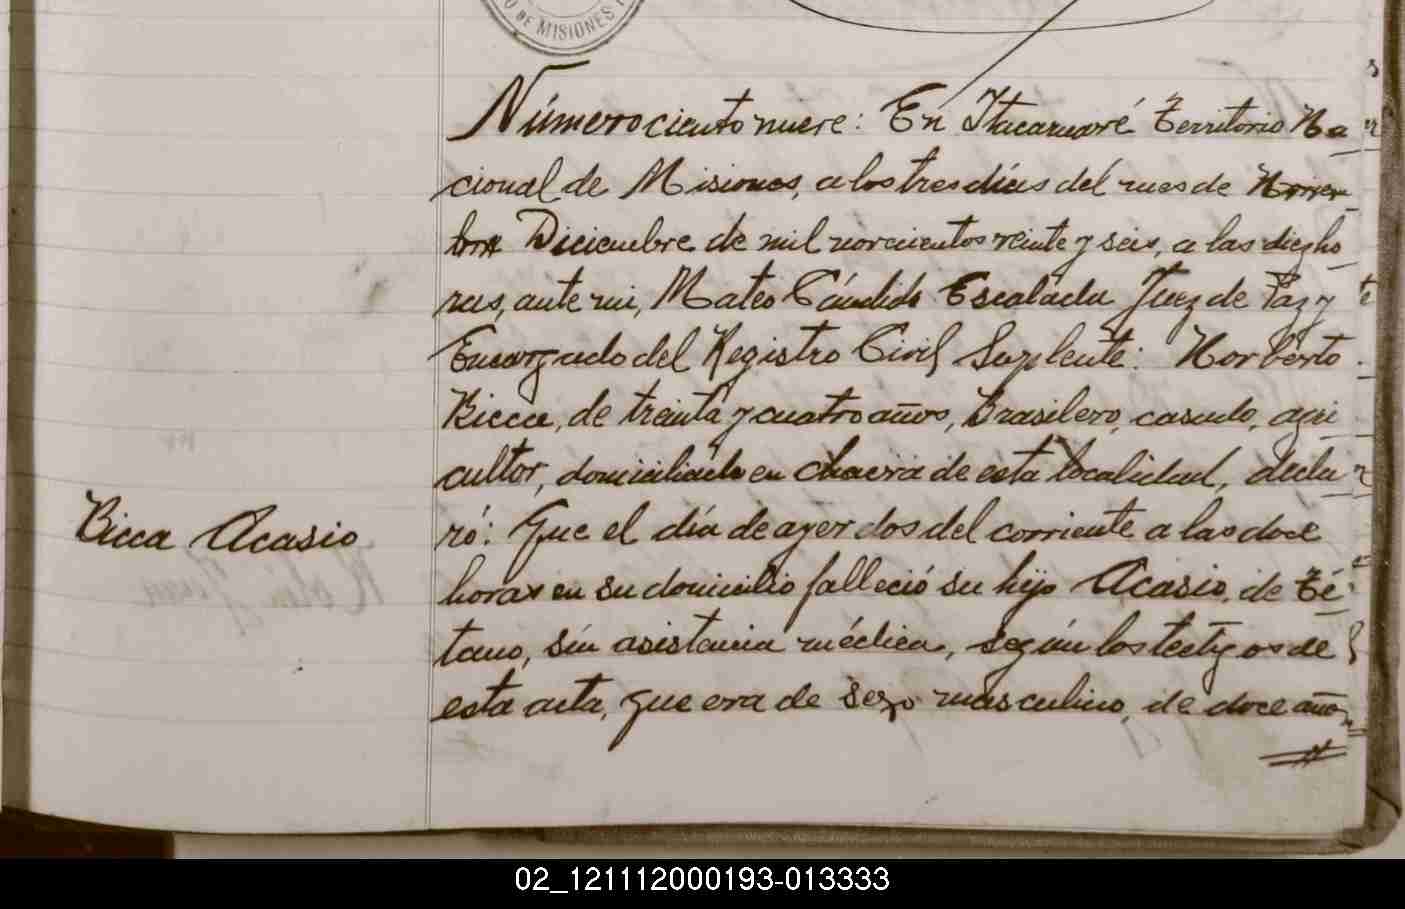 O DE MISIONES
Número ciento nueve: En Itacaruaré Territorio Na
cional de Misiones, a los tres días del mes de Noviem
bre Diciembre de mil novecientos veinte y seis, a las diez ho
ras, ante mi, Mateo Cándido Escalada Juez de Paz y
Encargado del Registro Civil Suplente: Norberto
Bicca, de treinta y cuatro años, brasilero, casado, agri
cultor, domiciliado en chacra de esta localidad, decla
Bicca Acasio
ró: Que el día de ayer dos del corriente a las doce
horas en su domicilio falleció su hijo Acasio, de té
tano, sin asistancia médica, según los testigos de
esta acta, que era de sexo masculino, de doce años
02_121112000193-013333